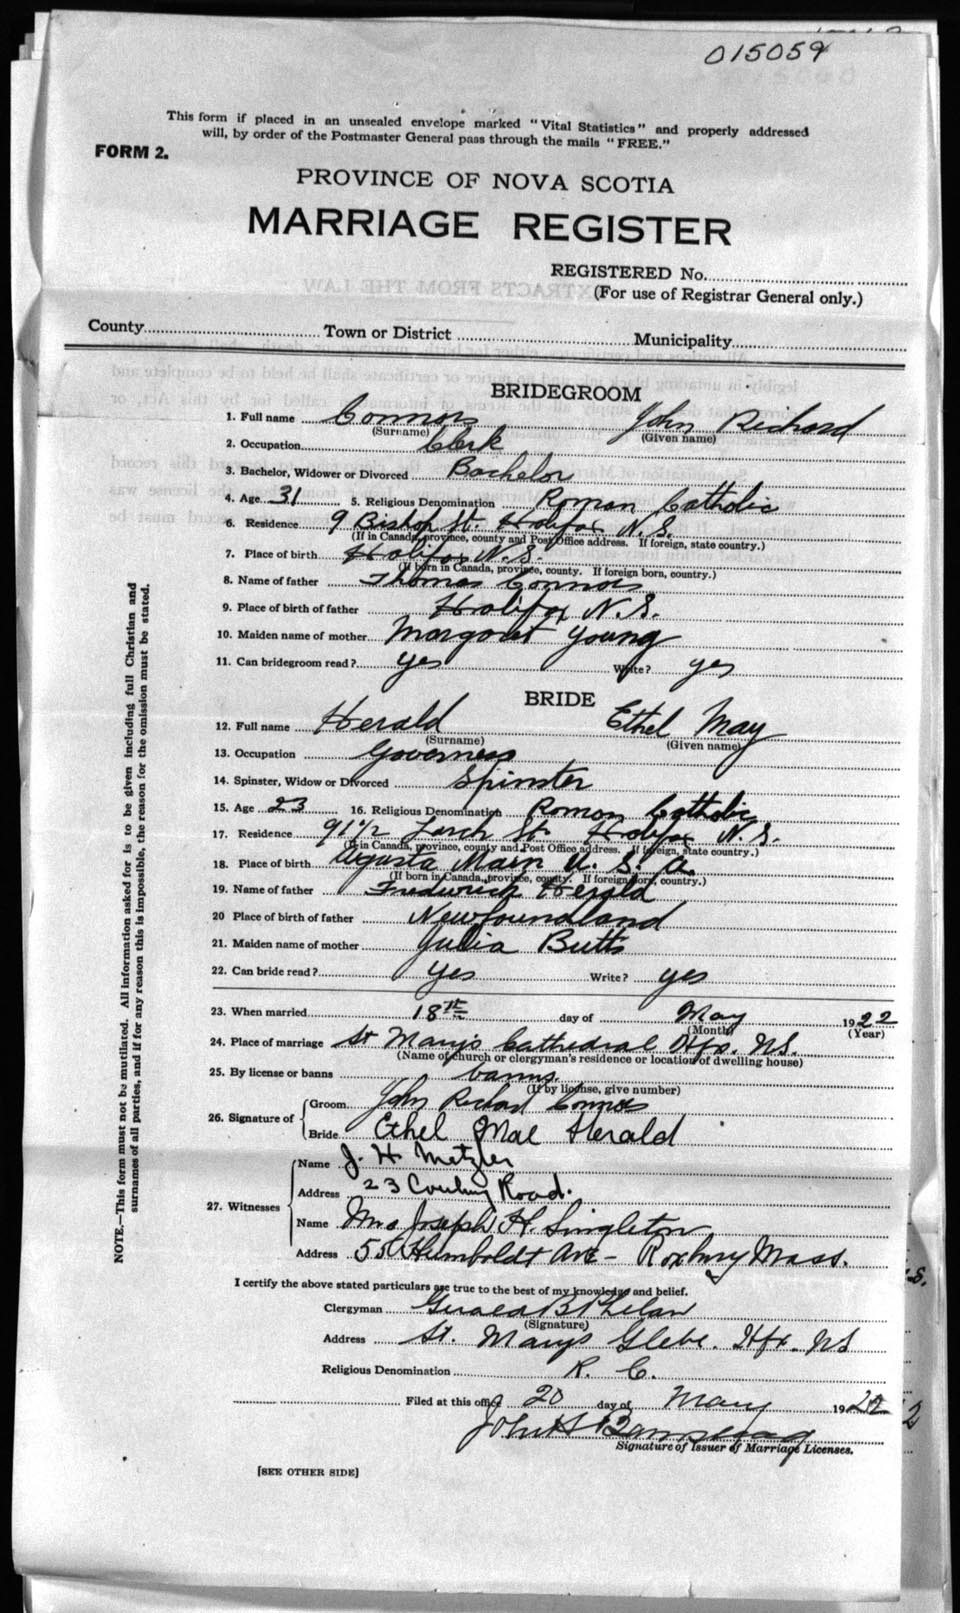 015059
This form if placed in an unsealed envelope marked "Vital Statistics" and properly addressed
will, by order of the Postmaster General pass through the mails "FREE."
FORM 2.
PROVINCE OF NOVA SCOTIA
MARRIAGE REGISTER
REGISTERED No.
(For use of Registrar General only.)
County Town or District Municipality
BRIDEGROOM
1. Full name Connors John Richard
(Surname) (Given name)
2. Occupation Clerk
3. Bachelor, Widower or Divorced Bachelor
4. Age 31 5. Religious Denomination Roman Catholic
6. Residence 9 Bishop St. Halifax N.S.
(If in Canada, province, county and Post Office address. If foreign, state country.)
7. Place of birth Halifax N.S.
(If born in Canada, province, county. If foreign born, country.)
8. Name of father Thomas Connors
9. Place of birth of father Halifax N.S.
10. Maiden name of mother Margaret Young
11. Can bridegroom read? yes Write? yes
BRIDE
12. Full name Herald Ethel May
(Surname) (Given name)
13. Occupation Governess
14. Spinster, Widow or Divorced Spinster
15. Age 23 16. Religious Denomination Roman Catholic
17. Residence 91 1/2 Larch St. Halifax N.S.
(If in Canada, province, county and Post Office address. If foreign, state country.)
18. Place of birth Agusta Main U.S.A.
(If born in Canada, province, county. If foreign born, country.)
19. Name of father Frederick Herald
20 Place of birth of father Newfoundland
21. Maiden name of mother Julia Butts
22. Can bride read? yes Write? yes
23. When married 18th day of May 1922
(Month) (Year)
24. Place of marriage St Mary's Cathedral Hfx. N.S.
(Name of church or clergyman's residence or location of dwelling house)
25. By license or banns banns
(If by license, give number)
26. Signature of Groom John Richard Connors
Bride Ethel Mae Herald
27. Witnesses Name J. H. Metzler
Address 23 Road.
Name Mrs Joseph H. Singleton
Address Humboldt Ave - Roxbury Mass.
I certify the above stated particulars are true to the best of my knowledge and belief.
Clergyman Gerald B Phelan
(Signature)
Address St. Marys Glebe. Hfx. NS
Religious Denomination R. C.
Filed at this office 20 day of May 1922
John H
Signature of Issuer of Marriage Licenses.
[SEE OTHER SIDE]
NOTE.—This form must not be mutilated. All information asked for is to be given including full Christian and
surnames of all parties, and if for any reason this is impossible, the reason for the omission must be stated.